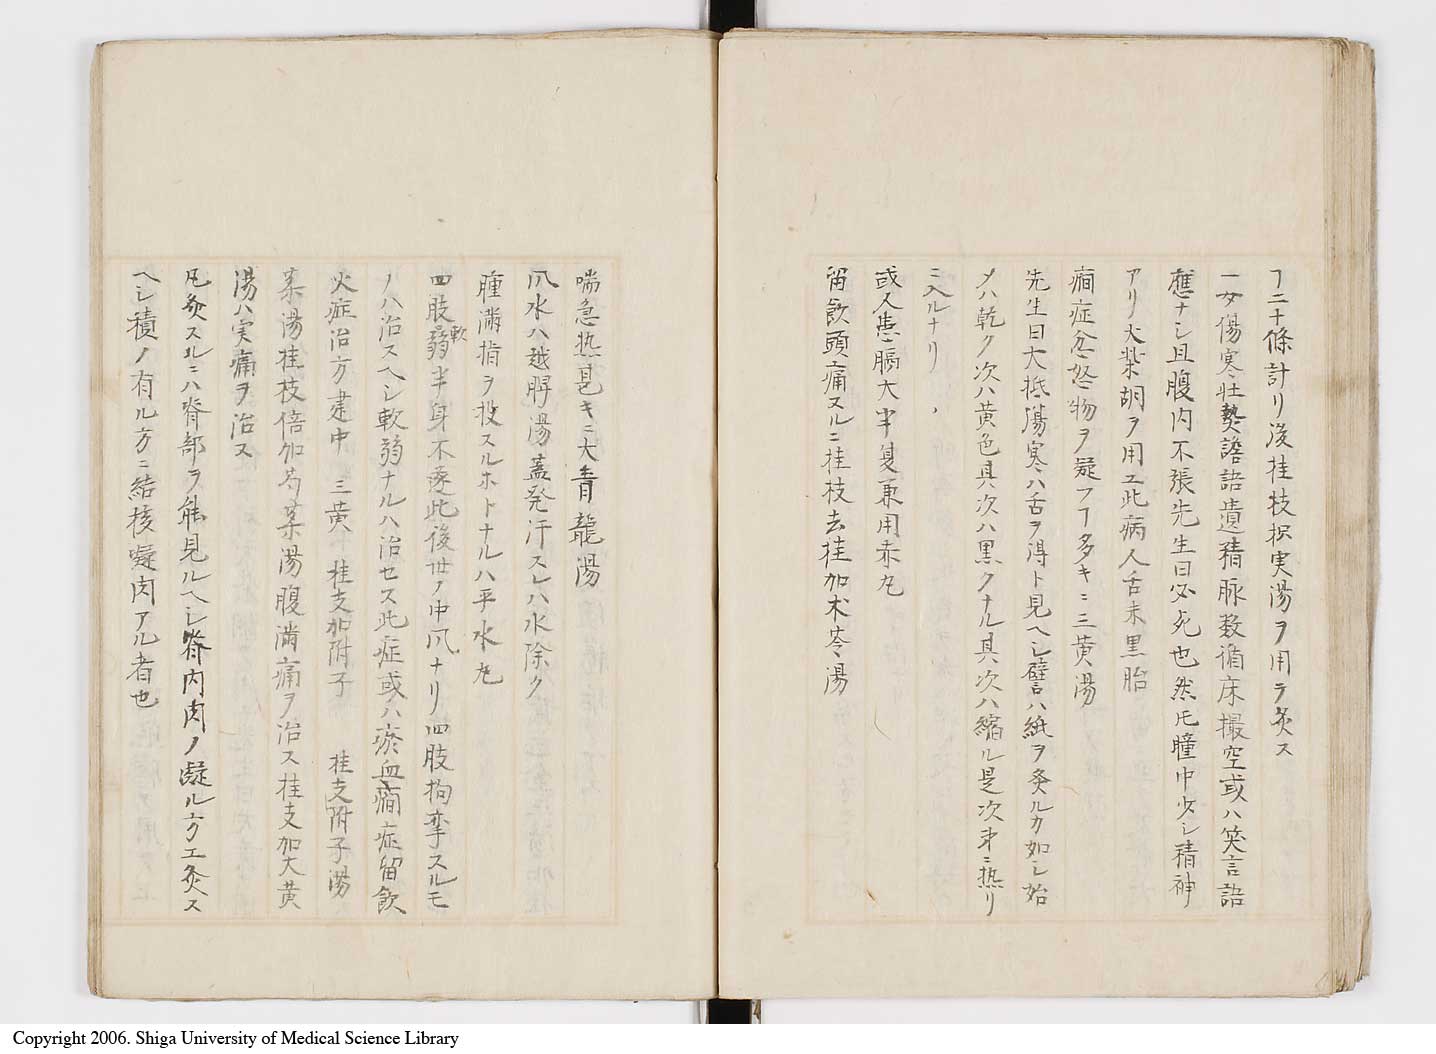 フ二十條計リ後桂枝枳実湯ヲ用テ灸ス
一女傷寒壮熱譫語遺精脉数循床撮空或ハ笑言語
應ナシ且腹内不張先生曰必死也然𪜈瞳中少シ精神
アリ大柴胡ヲ用ユ此病人舌未黒胎
癇症忿怒物ヲ疑フヿ多キニ三黄湯
先生曰大抵傷寒ハ舌ヲ得ト見ヘシ譬ハ紙ヲ灸ルカ如シ始
メハ乾ク次ハ黄色其次ハ黒クナル其次ハ縮ル是次第ニ熱リ
ニ入ルナリ
或人患膈大半夏兼用赤丸
留飲頭痛スルニ桂枝去桂加朮苓湯
喘急热甚キニ大青龍湯
風水ハ越脾湯蓋発汗スレハ水除ク
腫満指ヲ投スルホトナルハ平水丸
四肢軟弱半身不遂此後世ノ中風ナリ四肢拘挛スルモ
ノハ治スヘシ軟弱ナルハ治セス此症或ハ瘀血癇症留飲
火症治方建中 三黄 桂支加附子 桂支附子湯
薬湯桂枝倍加芍薬湯腹満痛ヲ治ス桂支加大黄
湯ハ実痛ヲ治ス
凡灸スルニハ脊部ヲ能見ルヘシ脊内肉ノ凝ル方エ灸ス
ヘシ積ノ有ル方ニ結核凝肉アル者也
Copyright 2006. Shiga University of Medical Science Library